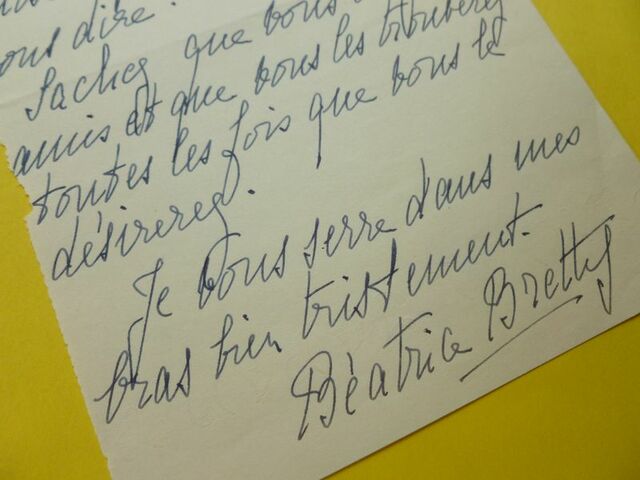 vous dire.
Sachez que vous
amis et que vous les trouverez
toutes les fois que vous le
désirerez.
Je vous serre dans mes
bras bien tristement.
Béatrice Bretty